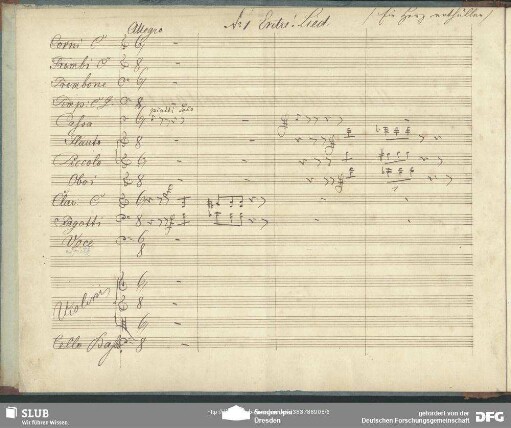 Allegro
No 1 Entre-Lied
Corni C
Trombi C
Trombone
Timp:
piatti Solo
Cassa
Flauto
Piccolo
Oboi
Clar. C
Fagotti
Voce
Violini
Cello Baß
SLUB
Wir führen Wissen.
Dresden
gefördert von der
Deutschen Forschungsgemeinschaft
DFG